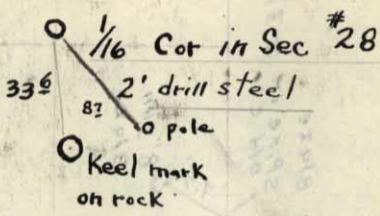 1/16 Cor in Sec #28
2' drill steel
33⁶
8⁷
pole
Keel mark
on rock